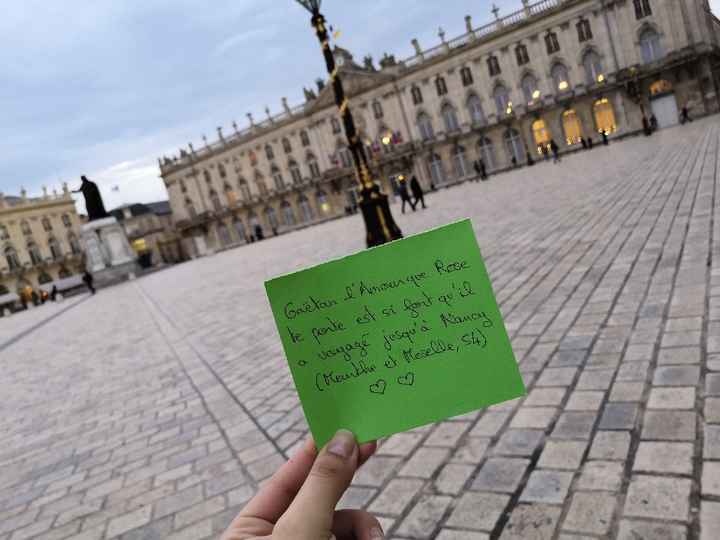 Gaëtan l'Amour que Rose
te porte est si font qu'il
a voyagé jusqu'à Nancy
(Meurthe et Moselle, 54)
♡ ♡